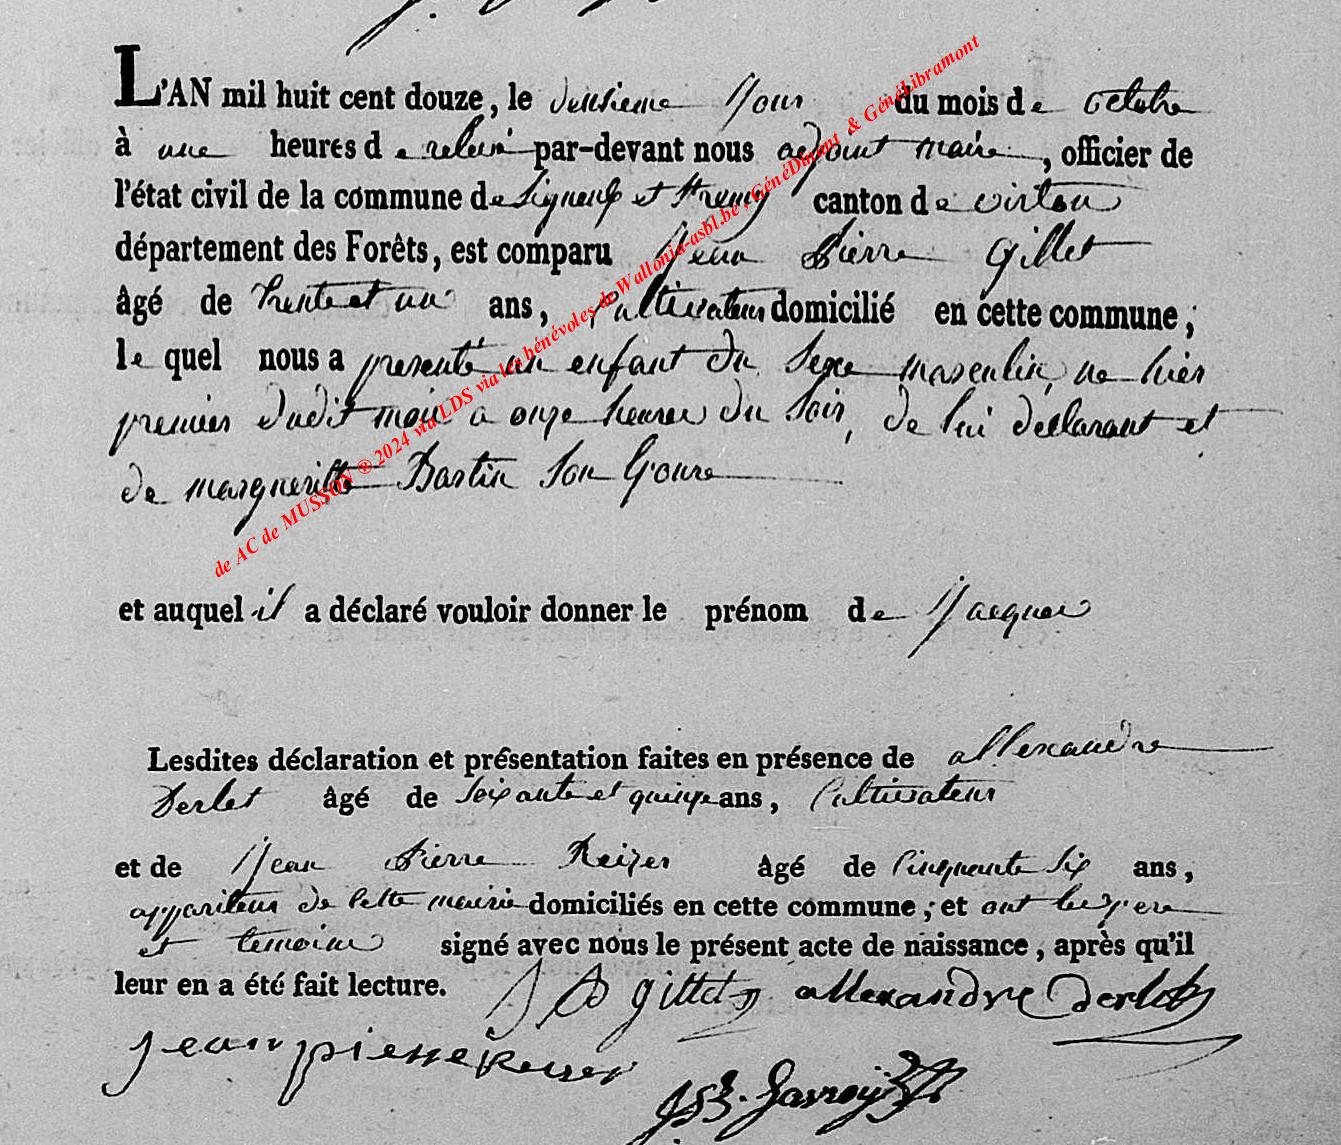 L'AN mil huit cent douze, le deusieme Jour du mois de octobre
à une heures de relevé par-devant nous adjoint maire, officier de
l'état civil de la commune de Signeulx et St remy canton de virton
département des Forêts, est comparu Jean Pierre Gillet
âgé de trente et un ans, Cultivateur domicilié en cette commune ;
le quel nous a presenté un enfant du Sexe masculin, ne hier
premier dudit mois a onze heures du Soir, de lui declarant et
de margueritte Bastin Son Epouse
de AC de MUSSON ® 2024 via LDS via les bénévoles de Wallonia-asbl.be, GénéDinant & GénéLibramont
et auquel il a déclaré vouloir donner le prénom de Jacques
Lesdites déclaration et présentation faites en présence de allexandre
Derlet âgé de soixante et quinze ans, Cultivateur
et de Jean Pierre Reizer âgé de Cinquante Six ans,
appariteur de cette mairie domiciliés en cette commune ; et ont les pere
et temoins signé avec nous le présent acte de naissance, après qu'il
leur en a été fait lecture. J P gillet allexandre derlet
jean pierre Reiser